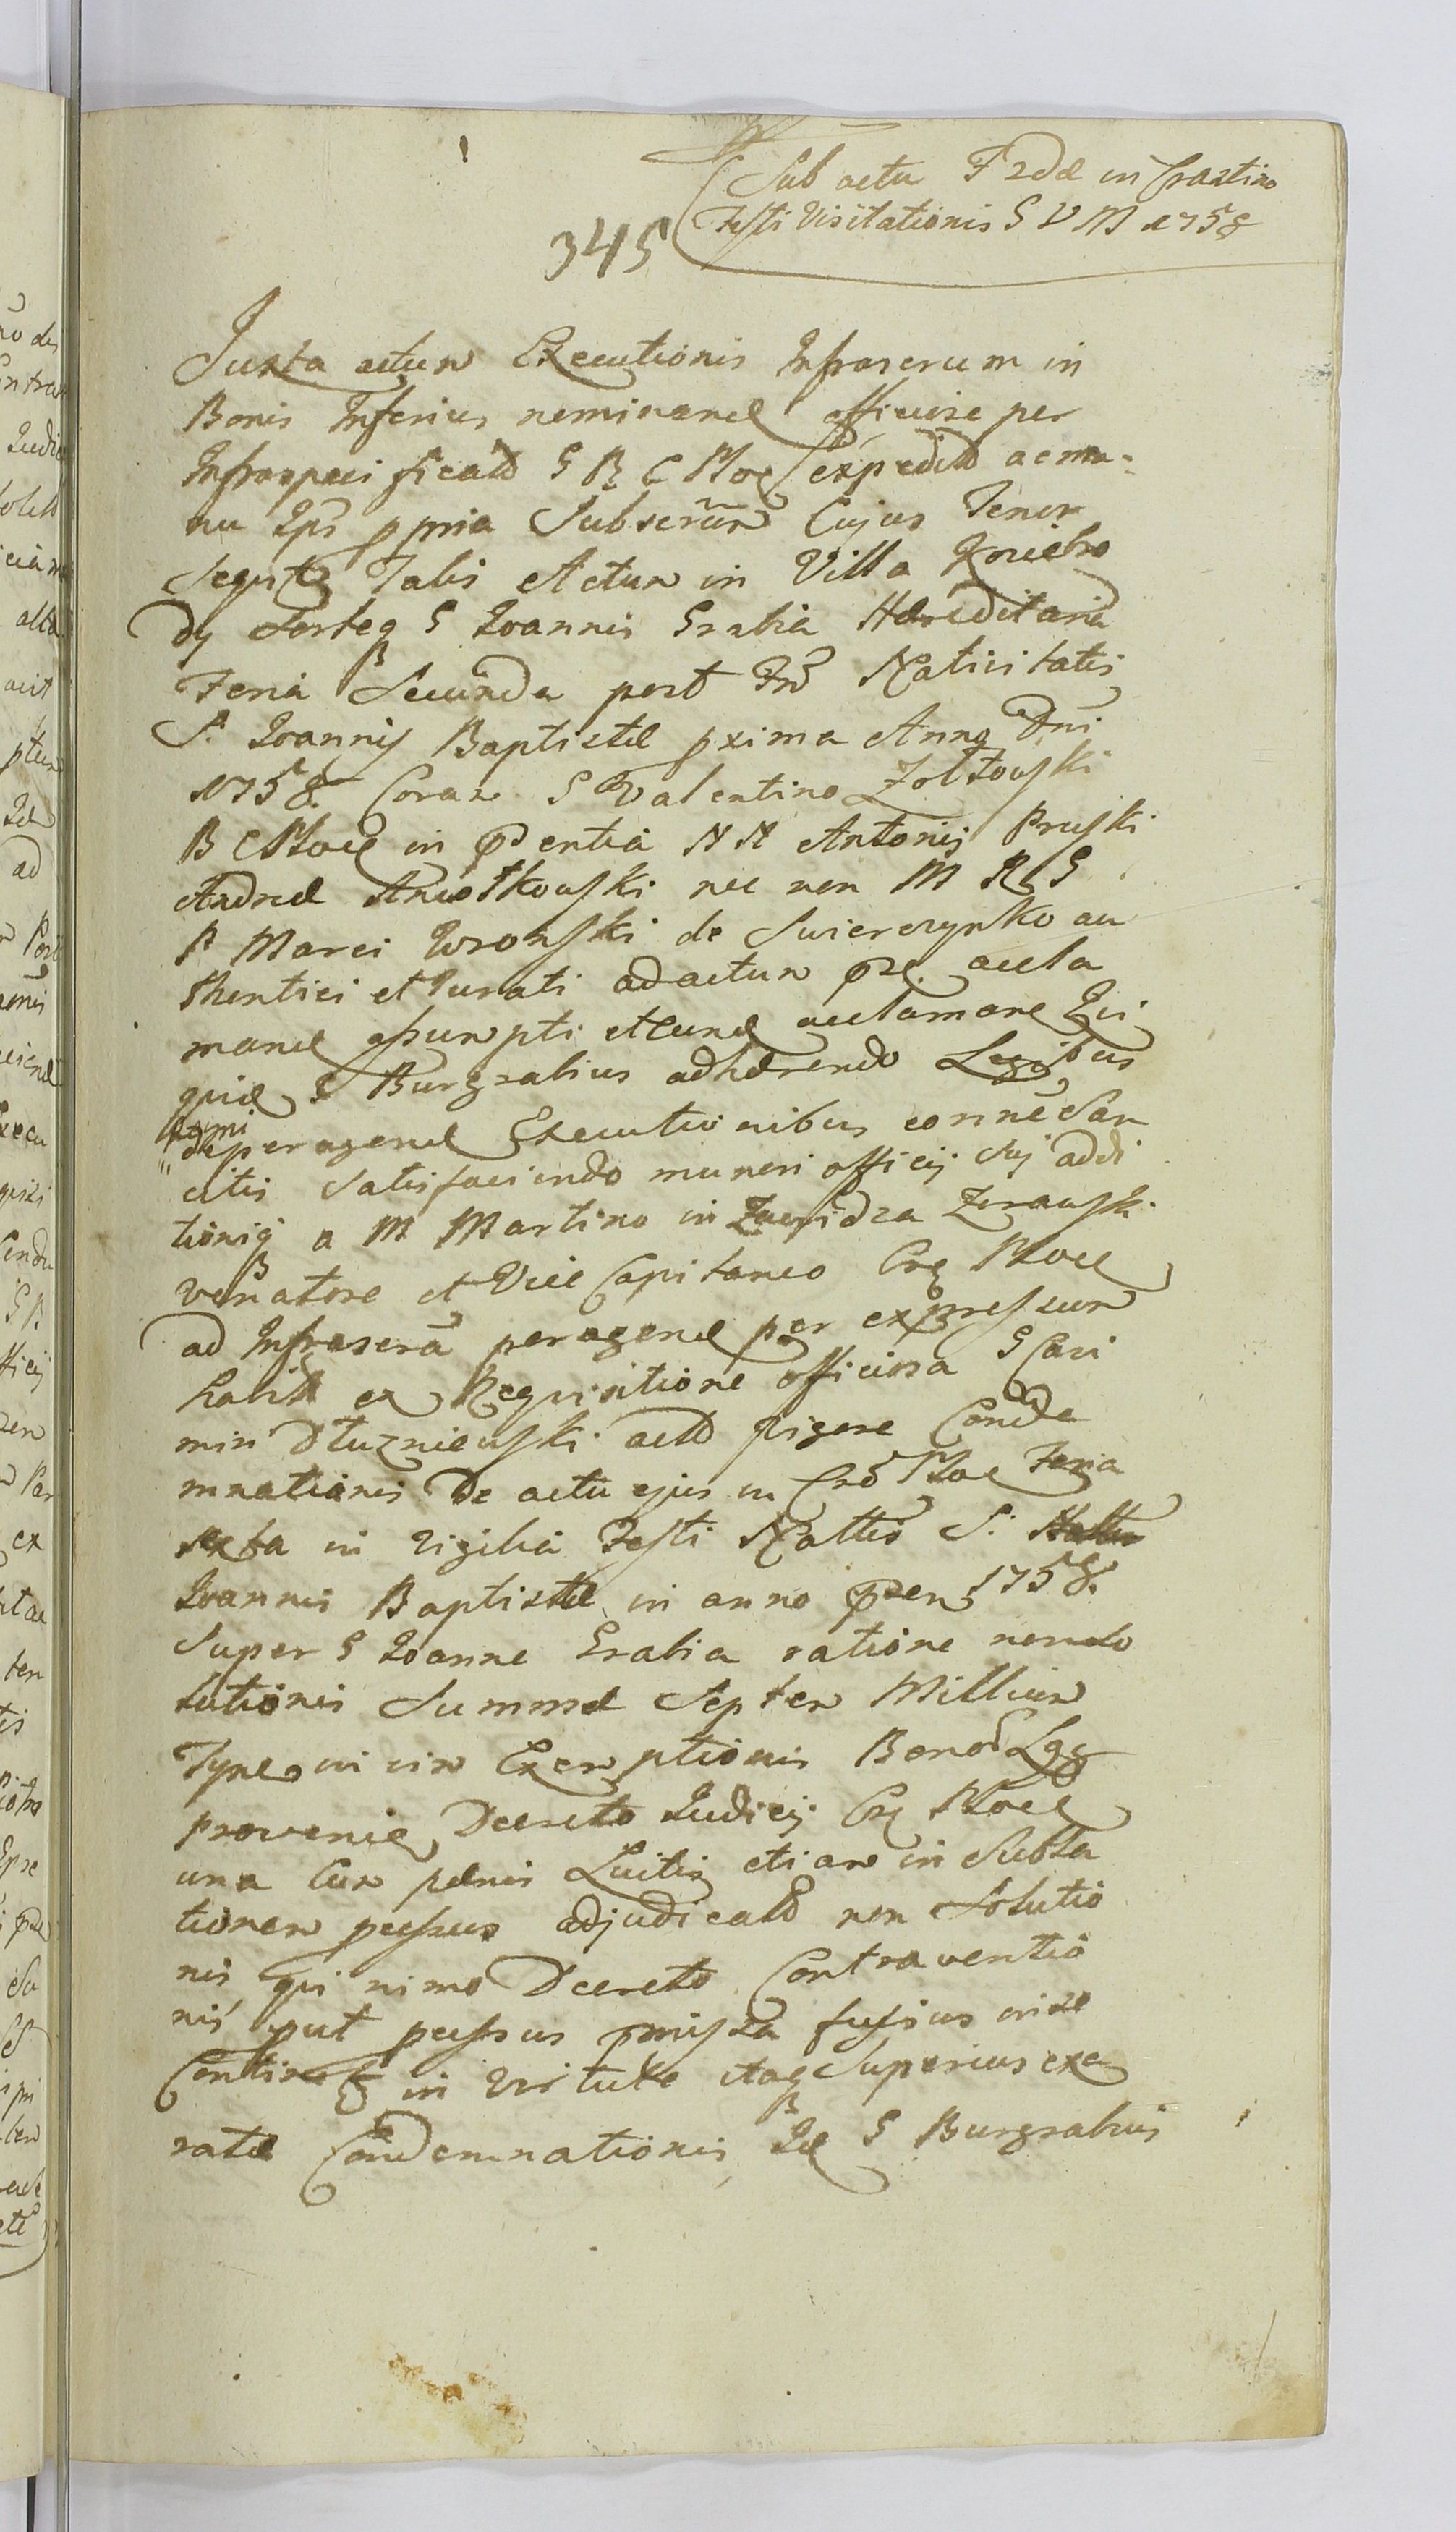 Sub actu Frdae in Crastino
Festi Visitationis S V M 1758
345
Juxta actum Executionis Infrascrum in
Bonis Inferius nominand officiose per
Infraspeci ficatd G B C Ploc expeditd ac ma-
nu Ips ppria Subscriūm Cujus Tenor
Sequit Talis Actum in Villa
dy Sorteq G Joannis Grabia Haereditaria
Feria Secunda post Nativitatis
S. Joannis Baptistae pxima Anno Dni
1758. Coram G Valentino Zołtowski
B C Ploce in pentia N N Antonij Pruski
Andreae nec non M R G
P Marci Wronski de Swierczynko au
thentici et Jurati ad actum accla
mand assumpti et eund acclamane Qui
quid G Burgrabius adhaerendo Legibus
Regni
deperagend Executionibus connē San
citis Satisfaciendo muneri officij Suj addi
tioniq a M Martino in Zawidza Zurawski
venatore et Vice Capitaneo Crq Ploce
ad Infrascra peragend per expressum
habit ex Requisitione officiosa G Casi
miri Dłuzniewski actd vigore Conde
mnationis De actu ejus in Crō Ploc Feria
sexta in vigilia Festi Nattis S.
Joannis Baptistae in anno psen 1758.
Super G Joanne Grabia ratione nonso
lutionis Summae Septem Millium
Tynfo in vim Exemptionis Bonor
provenie Decreto Judicij Crq Ploce
una Cum paenis Luitis etiam in Solu
tionem pessus adjudicatd non Solutio
nis qui nimo Decreto Contraventio
nis put pessus pmissa fusius in se
Continet in virtute itaq Superius exa
ratae Condemnationis Id G Burgrabius